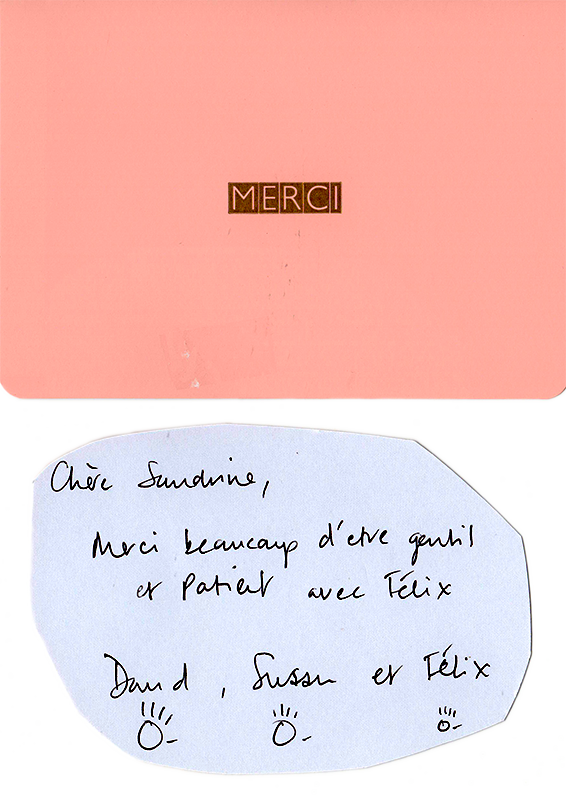 MERCI
Chère Sandrine,
Merci beaucoup d'etre gentil
et Patient avec Félix
David, Susan et Félix